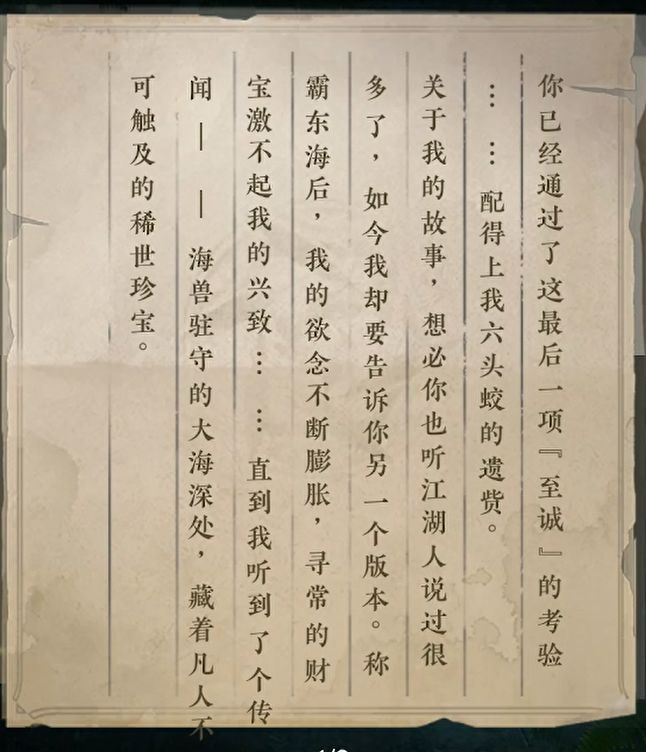 你已经通过了这最后一项『至诚』的考验
……配得上我六头蛟的遗赀。
关于我的故事，想必你也听江湖人说过很
多了，如今我却要告诉你另一个版本。称
霸东海后，我的欲念不断膨胀，寻常的财
宝激不起我的兴致……直到我听到了个传
闻——海兽驻守的大海深处，藏着凡人不
可触及的稀世珍宝。